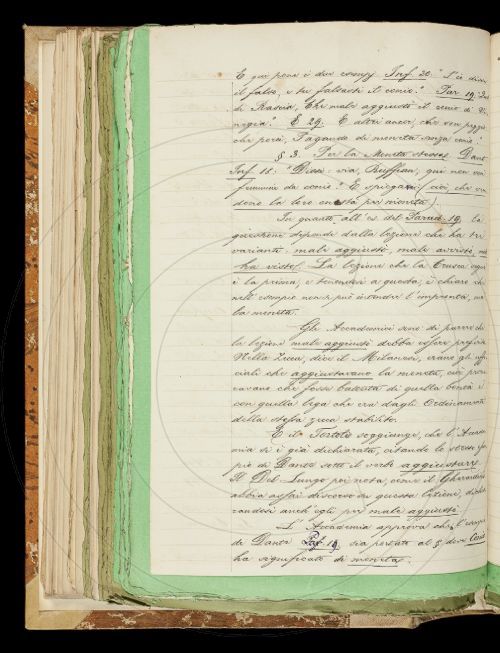 E qui pone i due esempj Inf. 30. "S'io dissi
il falso, e tu falsasti il conio." Par. 19. "Quel
di Rascia, Che male aggiustò il conio di Vi-
negia." E 29. E altri ancor, che son peggio
che porci, Pagando di moneta senza conio."
§ 3. Per la Moneta stessa. Dant.
Inf. 18. "Via, Ruffian, qui non son
femmine da conio." E spiegasi cioè, che
done la loro onestà per moneta).
In quanto all'es. del Parad. 19, la
quistione dipende dalla lezione che ha tre
varianti: male aggiustò, male avvisò, mal
ha visto. La lezione che la Crusca segue
è la prima; e tenendosi a questa, è chiaro che
nell'esempio non si può intendere l'impronta, ma
la moneta.
Gli Accademici sono di parere che
la lezione male aggiustò debba essere preferita.
Nella Zecca, dice il Milanesi, erano gli uffi-
ciali che aggiustavano la moneta, cioè procu-
ravano che fosse battuta di quella bontà e
con quella lega che era dagli Ordinamenti
della stessa zecca stabilito.
E il Tortoli soggiunge, che l'Accade-
mia si è già dichiarata, citando lo stesso esem-
pio di Dante sotto il verbo aggiustare.
Il Del Lungo poi nota, come il Gherardini
abbia assai discorso su questa lezione, dichia-
randosi anch'egli per male aggiustò.
L'Accademia approva che l'esempio
di Dante Par. 19. sia portato al § dove Conio
ha significato di moneta.